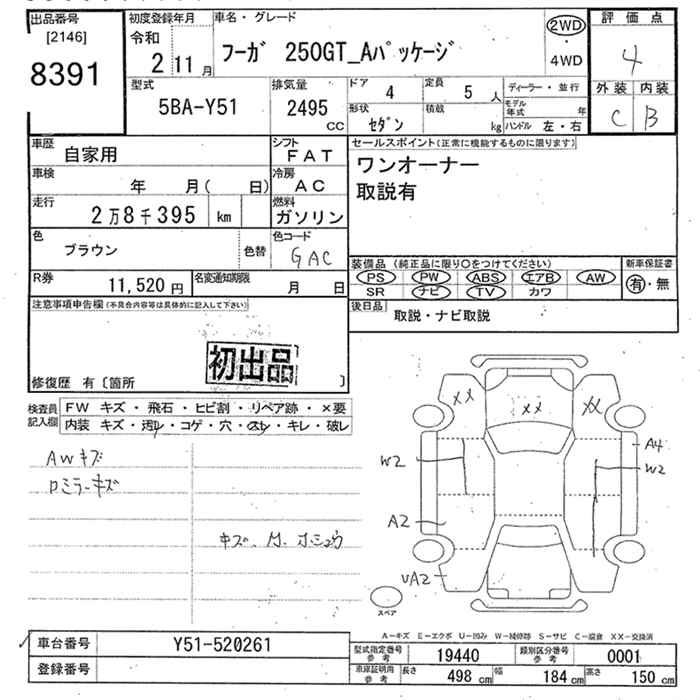 出品番号
[2146]
8391
初度登録年月
令和
2 11月
車名・グレード
フーガ 250GT_Aパッケージ
2WD
・
4WD
評価点
4
外装 内装
C B
型式
5BA-Y51
排気量
2495
CC
ドア
4
定員
5 人
形状
セダン
積載
kg
ディーラー・並行
モデル年式 年
ハンドル 左・右
車歴
自家用
シフト
FAT
車検
年 月( 日)
冷房
AC
走行
2万8千395 km
燃料
ガソリン
色
ブラウン
色替
色コード
GAC
R券
11,520 円
名変通知期限
月 日
セールスポイント(正常に機能するものに限ります)
ワンオーナー
取説有
装備品(純正品に限り〇をつけてください)
PS PW ABS エアB AW
SR ナビ TV カワ
新車保証書
有・無
後日品
取説・ナビ取説
注意事項申告欄(不具合内容等は具体的に記入して下さい)
初出品
修復歴 有〔箇所 〕
検査員
記入欄
FW キズ・飛石・ヒビ割・リペア跡・×要
内装 キズ・汚レ・コゲ・穴・スレ・キレ・破レ
AWキズ
ロミラーキズ
キズ、
XX XX XX
A4
W2 W2
A2
UA2
スペア
A−キズ E−エクボ U−凹み W−補修跡 S−サビ C−腐食 XX−交換済
車台番号
Y51-520261
登録番号
型式指定番号
参考
19440
類別区分番号
参考
0001
車庫証明用
参考
長さ 498 cm 幅 184 cm 高さ 150 cm